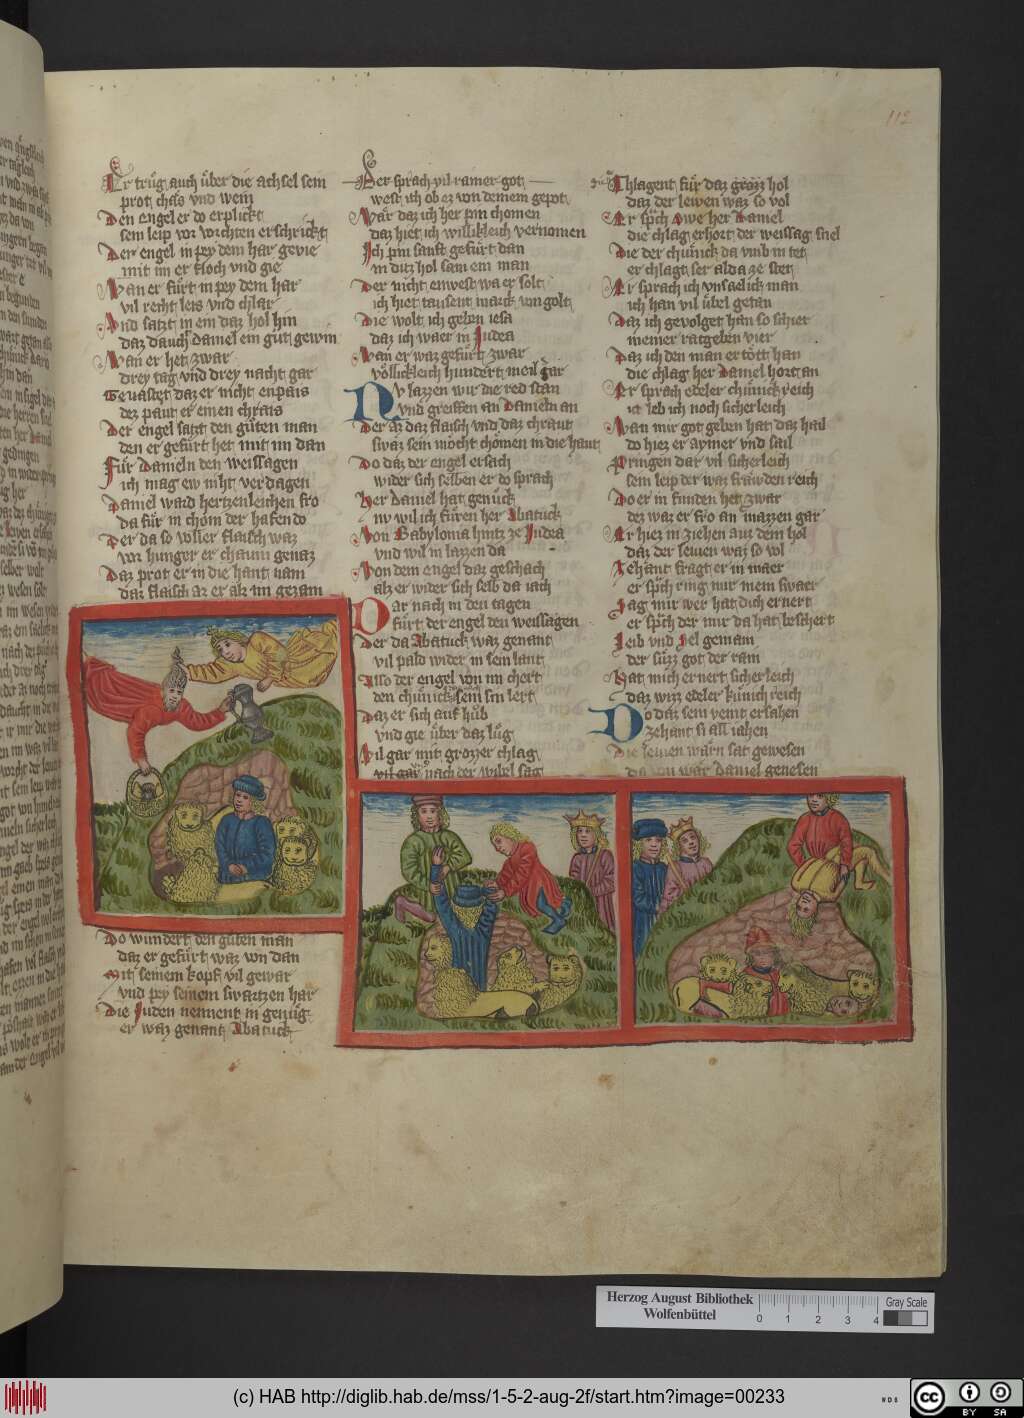 112
Er trůg auch ůber die achsel sein
prot chås vnd wein
Den engel er do erplickt
sein leip vor vorchten erschrickt
Der engel in pey dem har gevie
mit im er floch vnd gie
Wan er fůrt in pey dem har
vil recht leis vnd chlar
Vnd satzt in ein daz hol hin
daz dauch daniel ein gůt gewin
Wan er het zwar
drey tag vnd drey nacht gar
Gevastet daz er nicht enpais
dez paut er einen chrais
Der engel satzt den gůten man
den er gefůrt het mit im dan
Fůr danieln den weissagen
ich mag ew niht verdagen
Daniel ward hertzenleichen fro
da fůr in chom der hafen do
Der da so voller flaisch waz
vor hunger er chaum genaz
Daz prot er in die hant nam
daz flaisch az er alz im gezam
Do wundert den gůten man
daz er gefůrt waz von dan
Mit seinem kopf vil gewar
vnd pey seinem swartzen har
Die Juden nement in genůg
er waz genant Abacuck
Der sprach vil rainer got
west ich ob ez von deinem gepot
Wår daz ich her pin chomen
daz hiet ich willikleich vernomen
Ich pin sanft gefůrt dan
in ditz hol sam ein man
Der nicht enwest wa er solt
ich hiet tausent marck von golt
Die wolt ich geben iesa
daz ich waer in Judea
Wan er waz gefůrt zwar
völlickleich hundert meil gar
Nv lazzen wir die red stan
vnd greiffen an Danieln an
Der az daz flaisch vnd daz chraut
swaz sein möcht chömen in die haut
Do daz der engel ersach
wider sich selben er do sprach
Her daniel hat genůck
nv wil ich fůren her Abacuck
Von Babylonia hintz ze Judea
vnd wil in lazzen da
Von dem engel daz geschach
alz er wider sich selb da iach
Dar nach in den tagen
fůrt der engel den weissagen
Der da Abacuck waz genant
vil pald wider in sein lant
Also der engel von im chert
den chůnick sein sin lert
Daz er sich auf hůb
vnd gie ůber daz lůg
Vil gar mit grozzer chlag
vil gar nach der wibel sag
Chlagent fůr daz grozz hol
daz der lewen waz so vol
Er sp̃ch Awe her Daniel
die chlag erhort der weissag snel
Die der chůnick da vmb in tet
er chlagt ser alda ze stet
Er sprach ich vnsaelick man
ich han vil ůbel getan
Daz ich gevolget han so schier
meiner ratgeben vier
Daz ich den man ertött han
die chlag her Daniel hort an
Er sprach edeler chůnick reich
ia leb ich noch sicherleich
Wan mir got geben hat daz hail
do hiez er aymer vnd sail
Pringen dar vil sicherleich
sein leip der waz fråwden reich
Do er in funden het zwar
dez waz er fro an mazzen gar
Er hiez in ziehen auz dem hol
daz der lewen waz so vol
Zehant fragt er in maer
er sp̃ch ring mir mein swaer
Sag mir wer hat dich ernert
er sp̃ch der mir da hat beschert
Leib vnd sel gemain
der sůzz got der rain
Hat mich ernert sicherleich
daz wizz edeler kůnich reich
Do daz sein veint ersahen
zehant si all iahen
Die lewen wårn sat gewesen
da von wår daniel genesen
Herzog August Bibliothek
Wolfenbüttel
0 1 2 3 4
Gray Scale
(c) HAB http://diglib.hab.de/mss/1-5-2-aug-2f/start.htm?image=00233
WDB
cc BY SA